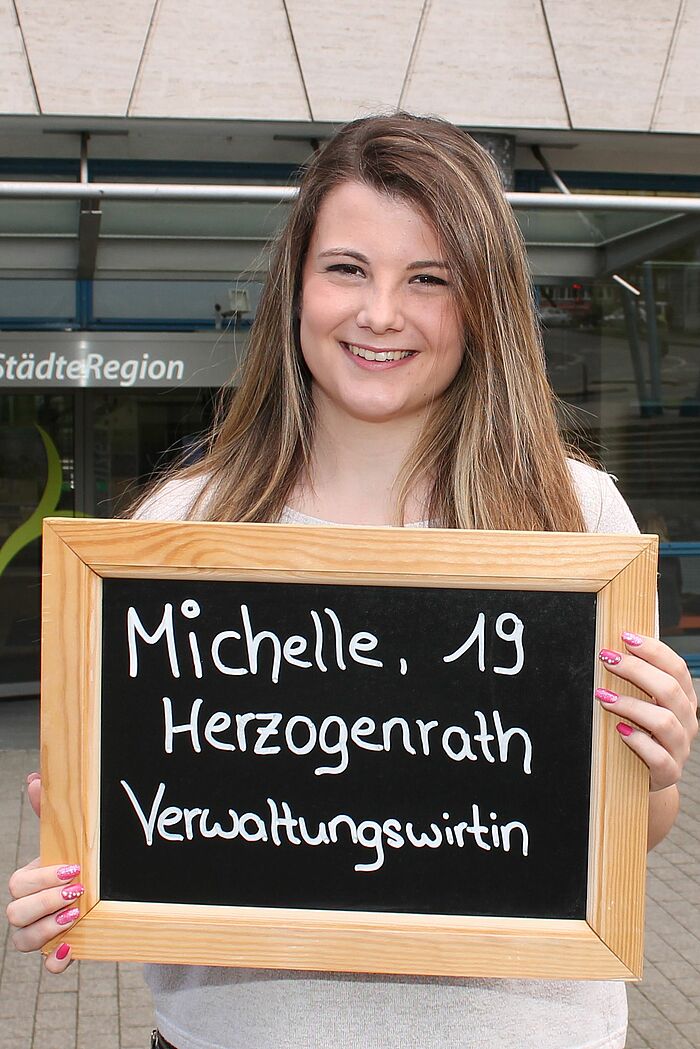 StädteRegion
Michelle, 19
Herzogenrath
Verwaltungswirtin